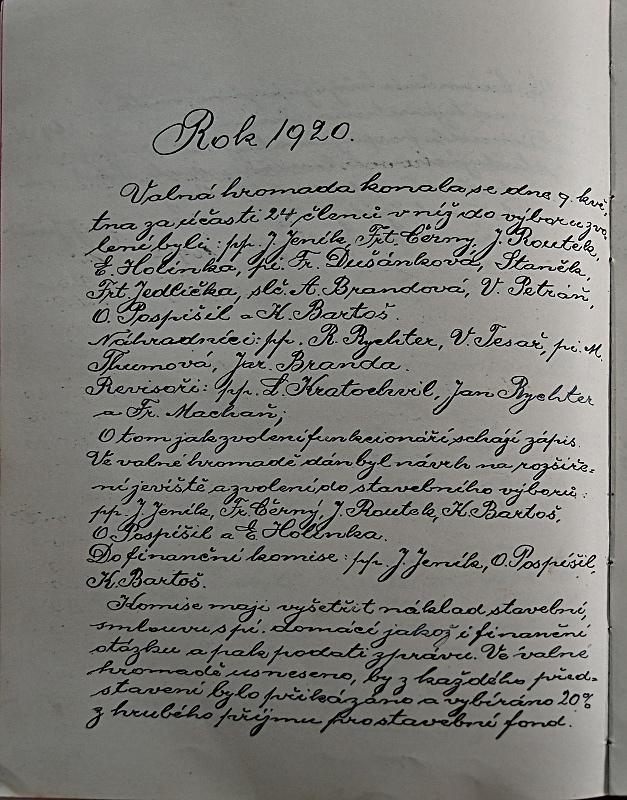 Rok 1920.
Valná hromada konala se dne 9. kvě-
tna za účasti 24 členů v níž do výboru zvo-
leni byli: pp. J. Jeník, Frt. Černý, J. Routek,
E. Holinka, pí. Fr. Dušánková, Staněk
Frt. Jedlička, slč. A. Brandová, V. Petráň,
O. Pospíšil a K. Bartoš.
Náhradníci: pp. R. Rychter, V. Tesař, pí. M.
Thumová, Jar. Branda.
Revisoři: pp. L. Kratochvil, Jan Rychter
a Fr. Machaň;
O tom jak zvoleni funkcionáři schází zápis.
Ve valné hromadě dán byl návrh na rozšíře-
ní jeviště a zvoleni do stavebního výboru:
pp. J. Jeník, Fr. Černý, J. Routek, K. Bartoš,
O. Pospíšil a E. Holinka.
Do finanční komise: pp. J. Jeník, O. Pospíšil,
K. Bartoš.
Komise mají vyšetřit náklad stavební,
smlouvu s pí. domácí jakož i finanční
otázku a pak podati zprávu. Ve valné
hromadě usneseno, by z každého před-
stavení bylo přikázáno a vybíráno 20%
z hrubého příjmu pro stavební fond.